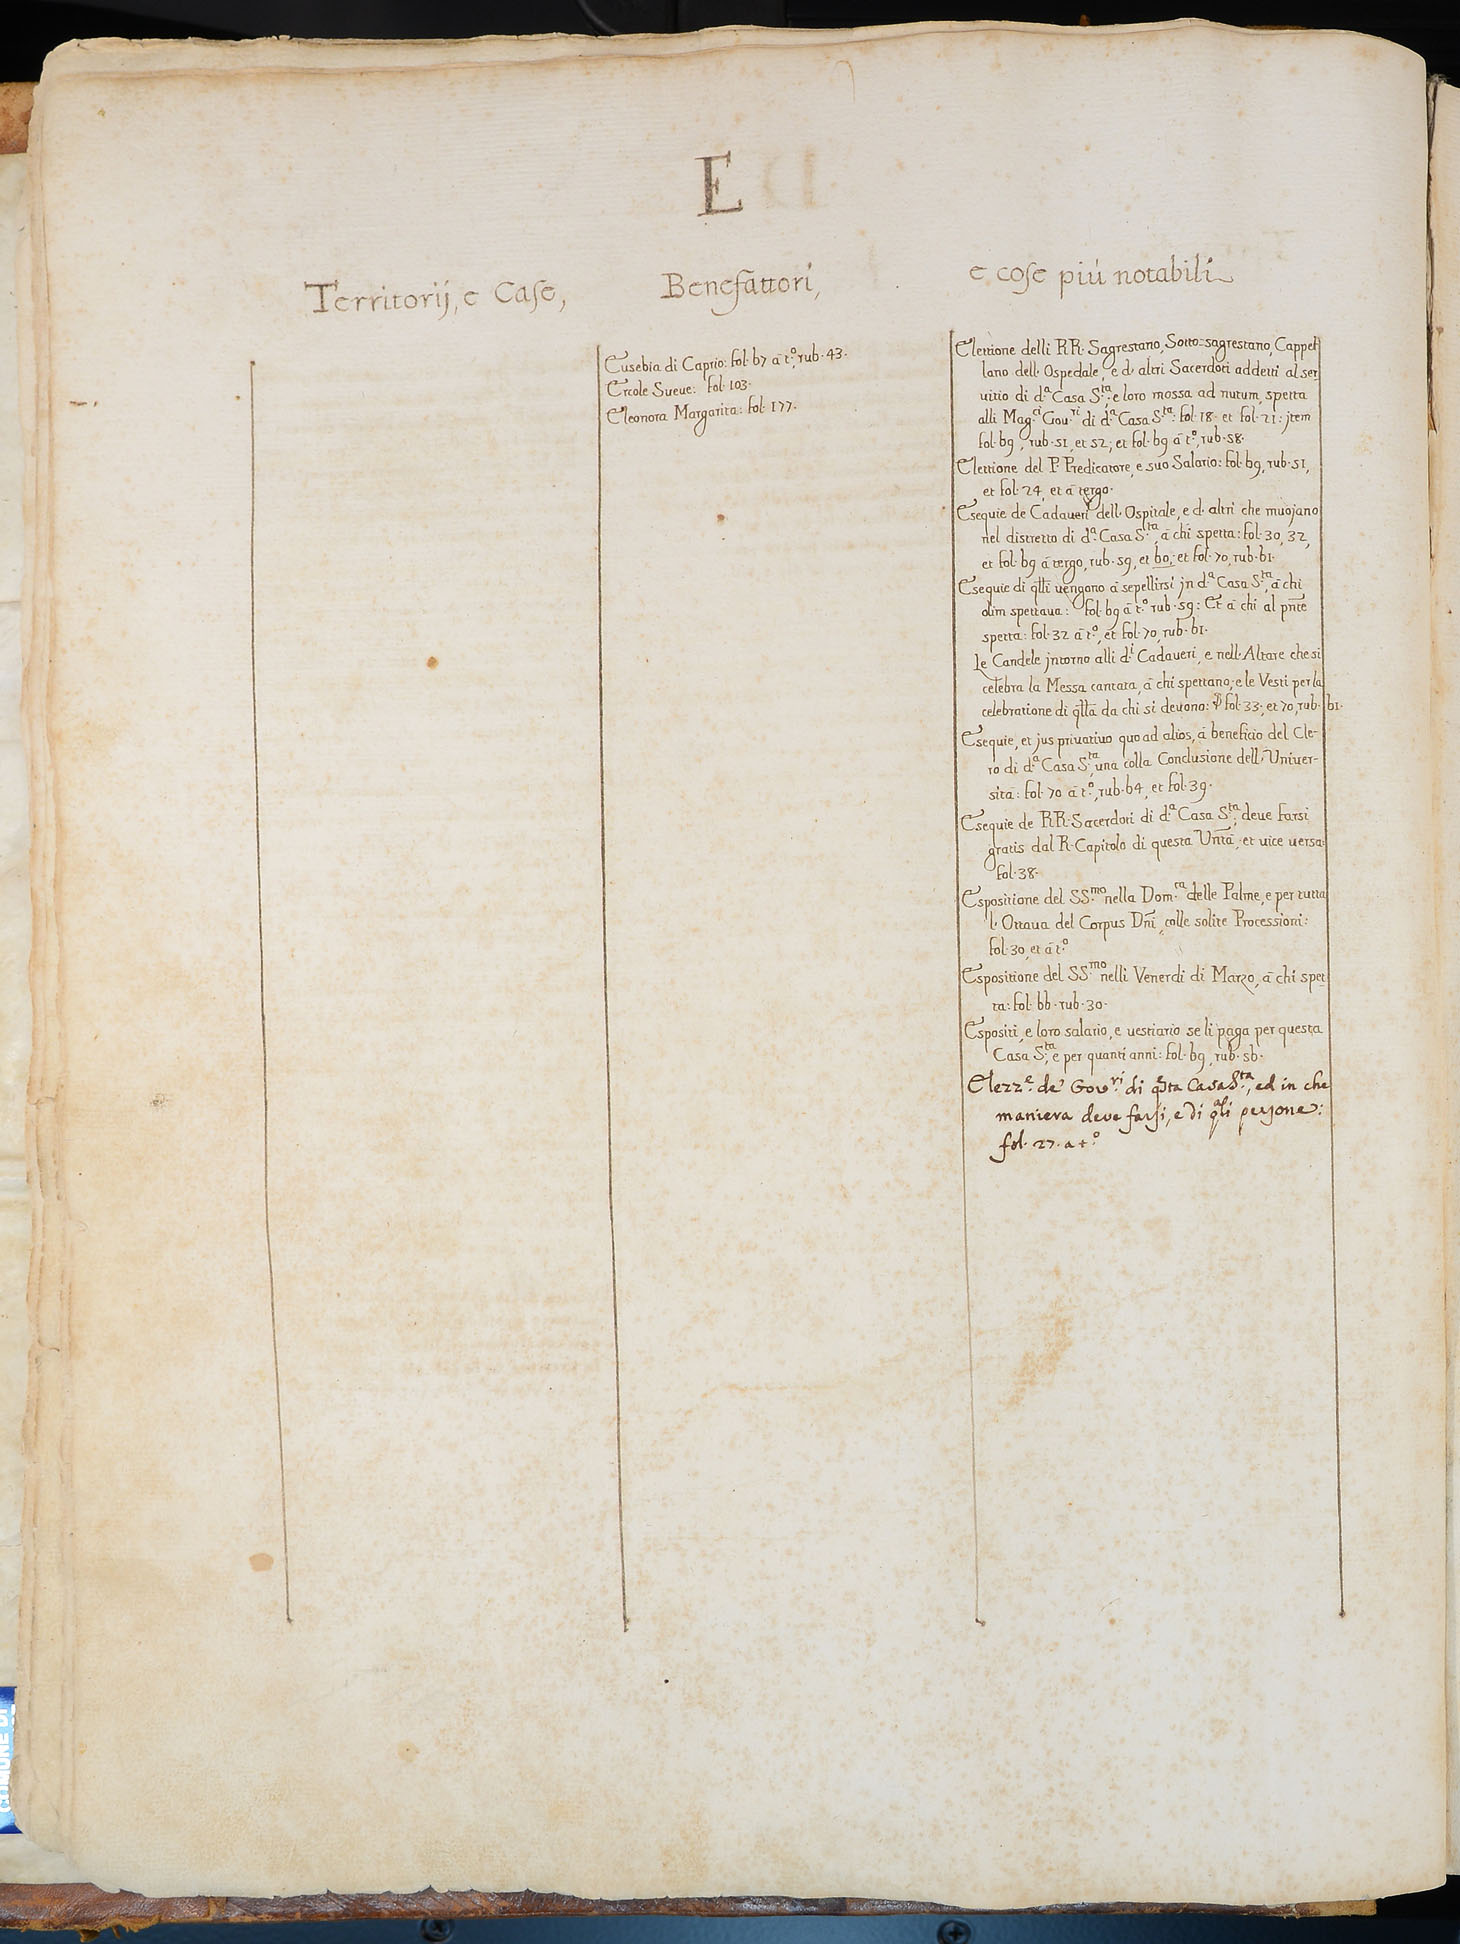 E
Territorij, e Case,
Benefattori,
e cose più notabili
Eusebia di Caprio: fol. 67 à t.º, rub. 43.
Ercole Sueue: fol. 103.
Eleonora Margarita: fol. 177.
Elettione delli RR. Sagrestano, Sotto=sagrestano, Cappel
lano dell' Ospedale, e d' altri Sacerdoti addetti al ser
uitio di d.ª Casa S.ta, e loro mossa ad nutum, spetta
alli Mag.ci Gou.ri di d.ª Casa S.ta: fol. 18. et fol. 21: jtem
fol. 69, rub. 51, et 52; et fol. 69 à t.º, rub. 58.
Elettione del P. Predicatore, e suo Salario: fol. 69, rub. 51,
et fol. 24, et à tergo.
Esequie de Cadaueri dell' Ospitale, e d' altri che muojano
nel distretto di d.ª Casa S.ta, à chi spetta: fol. 30, 32,
et fol. 69 à tergo, rub. 59, et 60; et fol. 70, rub. 61.
Esequie di q̃lli uengono à sepellirsi jn d.ª Casa S.ta, à chi
olim spettaua: fol. 69 à t.º rub. 59: Et à chi al pñte
spetta: fol. 32 à t.º, et fol. 70, rub. 61.
Le Candele jntorno alli d.i Cadaueri, e nell' Altare che si
celebra la Messa cantata, à chi spettano; e le Vesti per la
celebratione di q̃lla da chi si deuono: fol. 33; et 70, rub. 61.
Esequie, et jus priuatiuo quo ad alios, à beneficio del Cle-
ro di d.ª Casa S.ta, una colla Conclusione dell' Uniuer-
sità: fol. 70 à t.º, rub. 64, et fol. 39.
Esequie de RR. Sacerdoti di d.ª Casa S.ta, deue farsi
gratis dal R. Capitolo di questa Uñtà, et uice uersa:
fol. 38.
Espositione del SS.mo nella Dom.ca delle Palme, e per tutta
l' Ottaua del Corpus Dñi, colle solite Processioni:
fol. 30, et à t.º
Espositione del SS.mo nelli Venerdi di Marzo, à chi spet
ta: fol. 66. rub. 30.
Espositi, e loro salario, e uestiario se li paga per questa
Casa S.ta, e per quanti anni: fol. 69, rub. 56.
Elezz.e de' Gov.ri di q̃sta Casa S.ta, ed in che
maniera deve farsi, e di q.ali persone:
fol. 27. a t.º